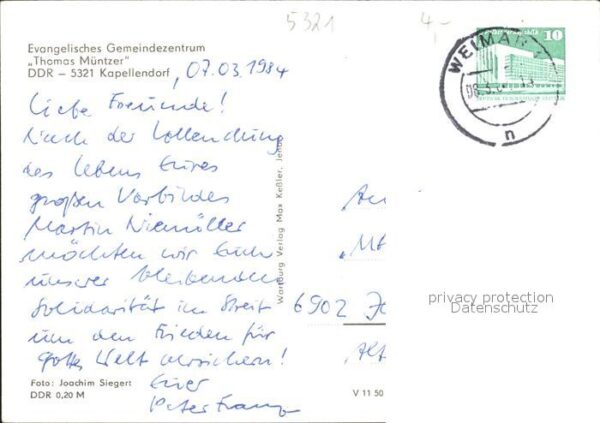 5321
4,-
Evangelisches Gemeindezentrum
„Thomas Müntzer"
DDR – 5321 Kapellendorf, 07.03.1984
Liebe Freunde!
Nach der Vollendung
des Lebens Eures
großen Vorbildes
Martin Niemöller
möchten wir Euch
unserer bleibenden
Solidarität im Streit
um den Frieden für
Gottes Welt versichern!
Euer
Peter Franz
Foto: Joachim Siegert
DDR 0,20 M
V 11 50
Wartburg Verlag Max Keßler, Jena
10
WEIMAR
n
An
6902
privacy protection
Datenschutz